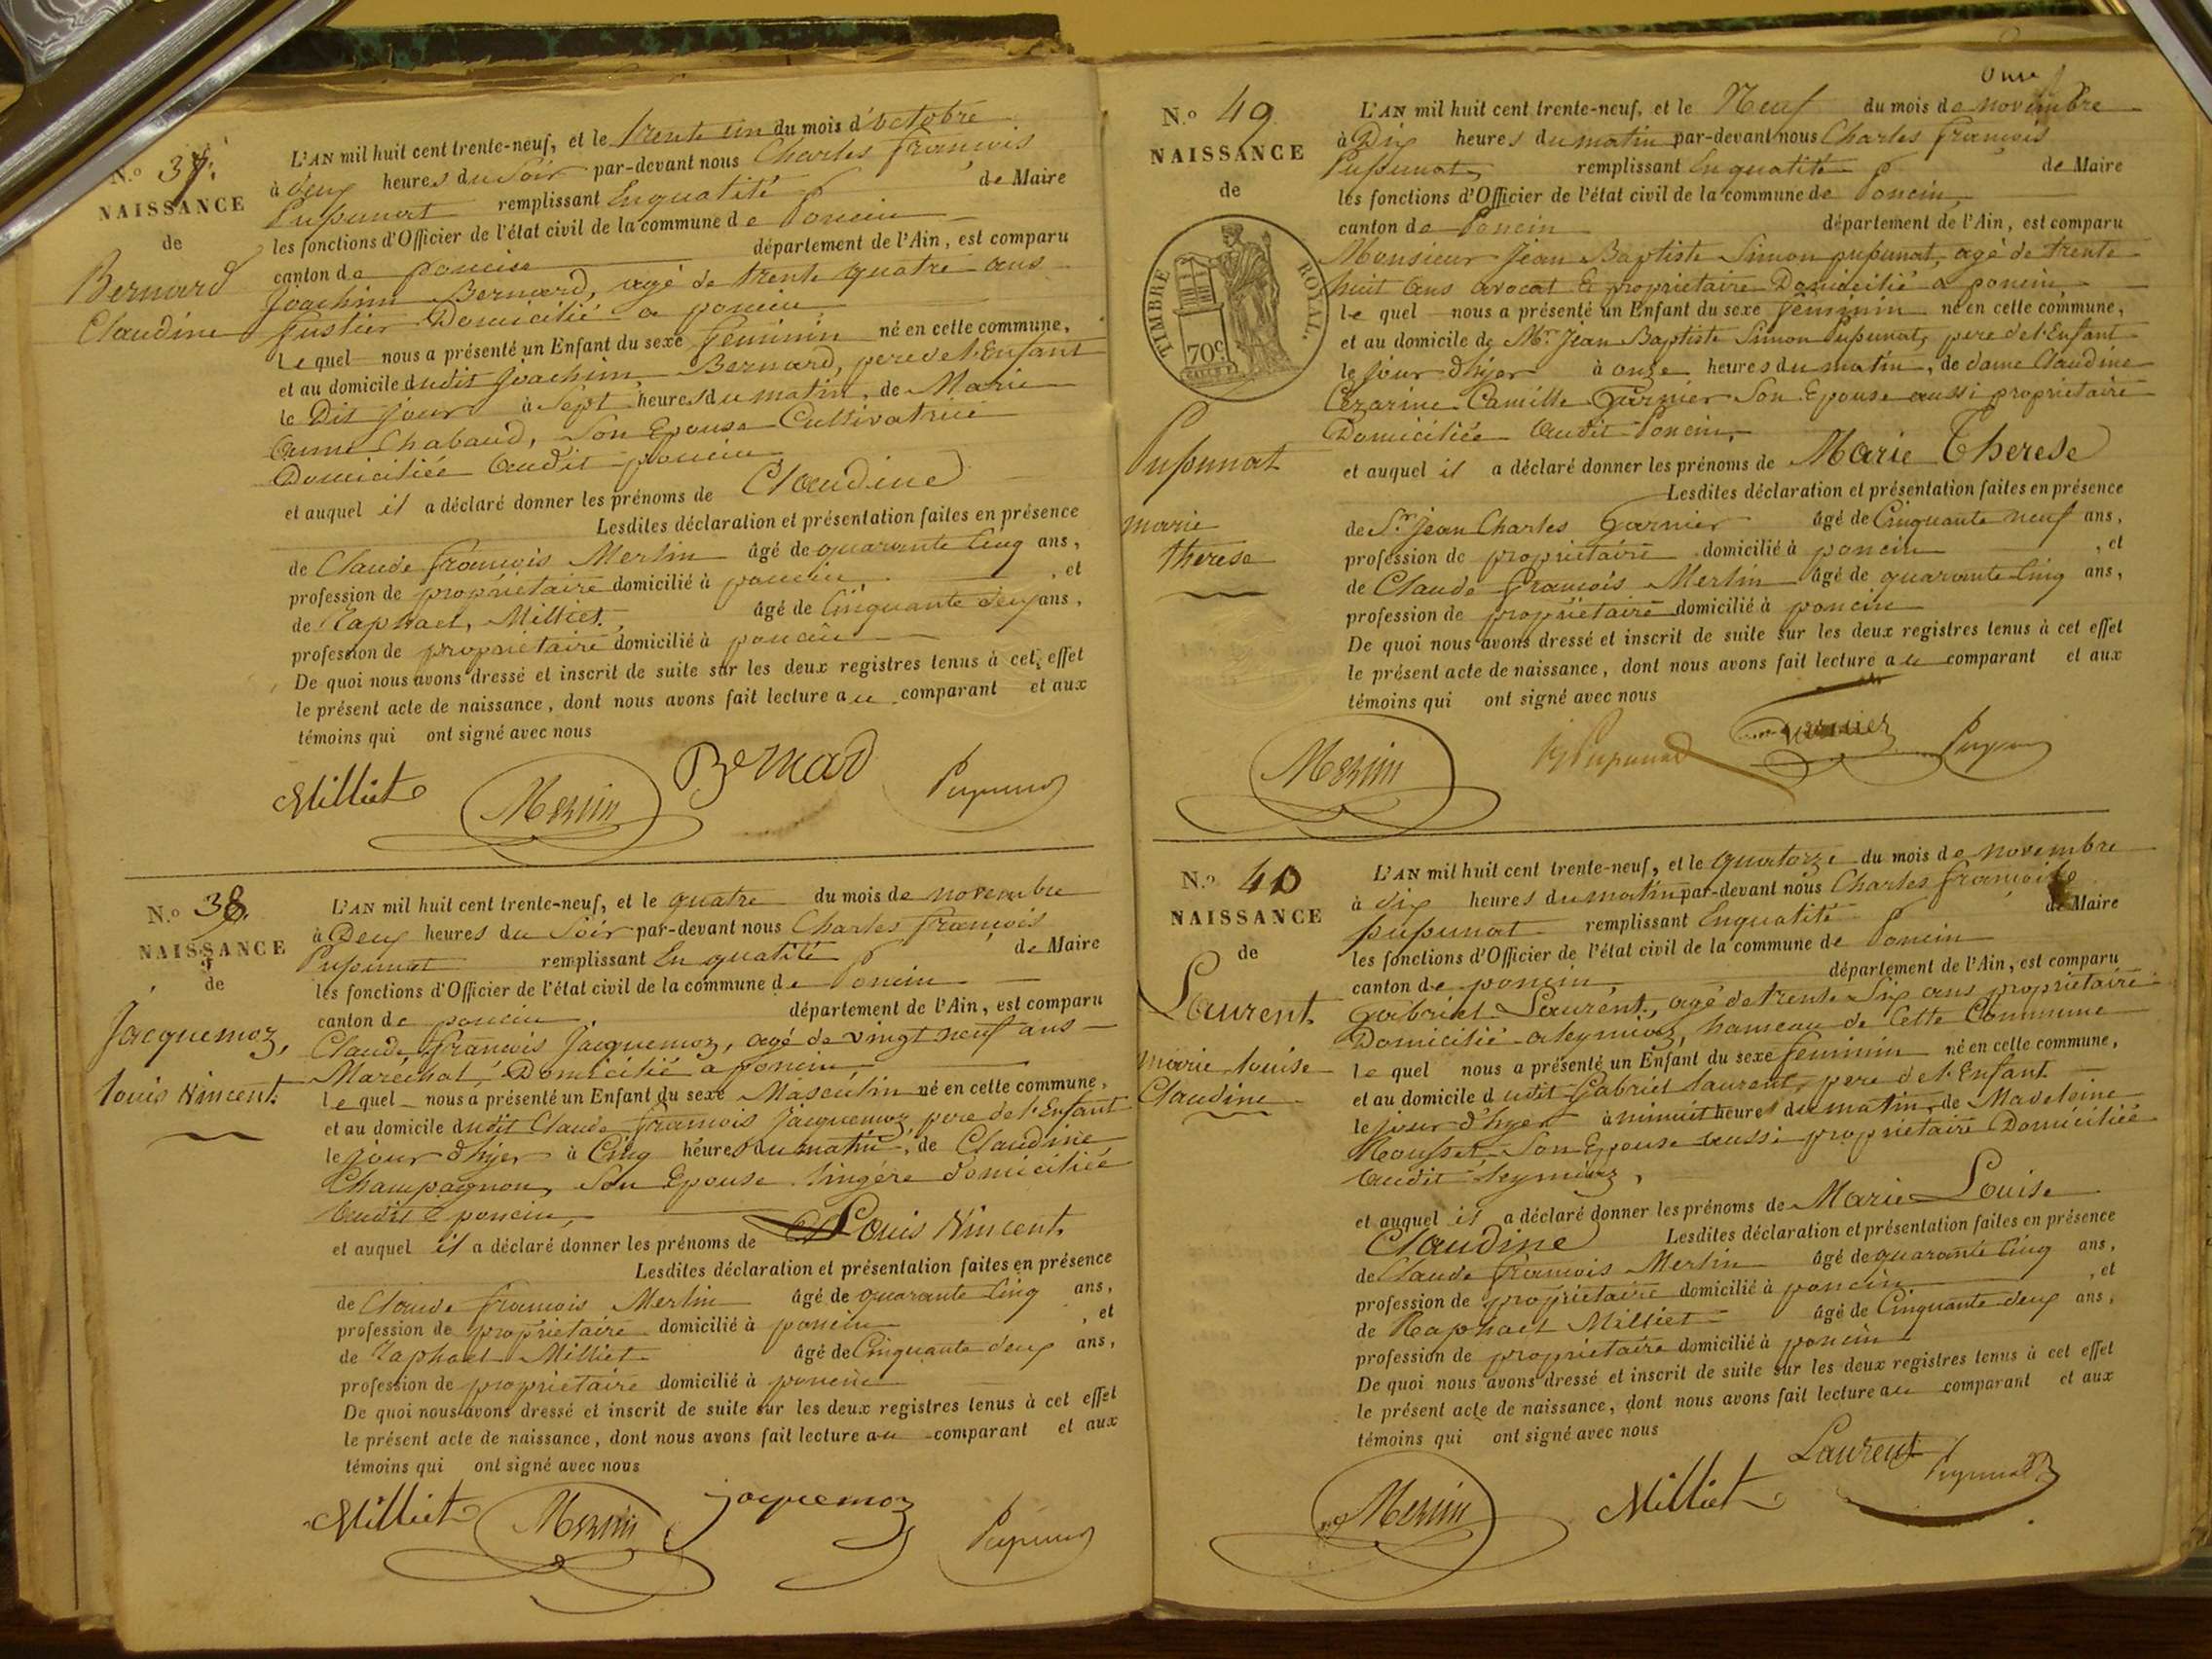 N.º 37.
NAISSANCE
de
Bernard
Claudine
L'AN mil huit cent trente-neuf, et le trente un du mois d'octobre
à deux heures du Soir par-devant nous Charles françois
Pupunat remplissant En qualité de Maire
les fonctions d'Officier de l'état civil de la commune de Poncin
canton de poncin département de l'Ain, est comparu
Joachim Bernard, agé de trente quatre ans
fustier Domicilié a poncin
Lequel nous a présenté un Enfant du sexe feminin né en cette commune,
et au domicile dudit Joachim Bernard, pere de l'Enfant
le Dit jour à Sept heures du matin, de Marie
anne Chabaud, Son Epouse Cultivatrice
Domiciliée audit poncin
et auquel il a déclaré donner les prénoms de Claudine
Lesdites déclaration et présentation faites en présence
de Claude françois Merlin âgé de quarante Cinq ans,
profession de propriétaire domicilié à poncin, et
de Raphael, Milliet. âgé de Cinquante deux ans,
profession de propriétaire domicilié à poncin
De quoi nous avons dressé et inscrit de suite sur les deux registres tenus à cet effet
le présent acte de naissance, dont nous avons fait lecture au comparant et aux
témoins qui ont signé avec nous
Milliet Merlin Bernard Pupunat
N.º 38.
NAISSANCE
de
Jacquemoz,
Louis Vincent.
L'AN mil huit cent trente-neuf, et le quatre du mois de novembre
à Deux heures du Soir par-devant nous Charles françois
Pupunat remplissant En qualité de Maire
les fonctions d'Officier de l'état civil de la commune de Poncin
canton de poncin département de l'Ain, est comparu
Claude françois Jacquemoz, agé de vingt neuf ans
Maréchal, Domicilié a poncin,
lequel nous a présenté un Enfant du sexe Masculin né en cette commune,
et au domicile dudit Claude françois Jacquemoz, pere de l'Enfant
le jour d'hyer à Cinq heures du matin, de Claudine
Champagnon, Son Epouse lingére domiciliée
audit poncin,
et auquel il a déclaré donner les prénoms de Louis Vincent.
Lesdites déclaration et présentation faites en présence
de Claude françois Merlin âgé de quarante Cinq ans,
profession de propriétaire domicilié à poncin, et
de Raphael Milliet âgé de Cinquante deux ans,
profession de propriétaire domicilié à poncin
De quoi nous avons dressé et inscrit de suite sur les deux registres tenus à cet effet
le présent acte de naissance, dont nous avons fait lecture au comparant et aux
témoins qui ont signé avec nous
Milliet Merlin jaquemoz Pupunat
N.º 49
NAISSANCE
de
TIMBRE ROYAL.
70c
Pupunat
marie
therese
L'AN mil huit cent trente-neuf, et le Neuf du mois de novembre
à Dix heures du matin par-devant nous Charles françois
Pupunat remplissant En qualité de Maire
les fonctions d'Officier de l'état civil de la commune de Poncin,
canton de Poncin département de l'Ain, est comparu
Monsieur Jean Baptiste Simon pupunat, agé de trente
huit ans avocat & propriétaire Domicilié a poncin
le quel nous a présenté un Enfant du sexe feminin né en cette commune,
et au domicile de Mr. Jean Baptiste Simon Pupunat, pere de l'Enfant
le jour d'hyer à onze heures du matin, de dame Claudine
Cézarine Camille Garnier Son Epouse aussi propriétaire
Domiciliée audit Poncin,
et auquel il a déclaré donner les prénoms de Marie Therese
Lesdites déclaration et présentation faites en présence
de Sr. Jean Charles Garnier âgé de Cinquante neuf ans,
profession de propriétaire domicilié à poncin, et
de Claude françois Merlin âgé de quarante Cinq ans,
profession de propriétaire domicilié à poncin
De quoi nous avons dressé et inscrit de suite sur les deux registres tenus à cet effet
le présent acte de naissance, dont nous avons fait lecture au comparant et aux
témoins qui ont signé avec nous
Merlin Pupunat Garnier Pupunat
N.º 40
NAISSANCE
de
Laurent.
marie louise
Claudine
L'AN mil huit cent trente-neuf, et le quatorze du mois de novembre
à dix heures du matin par-devant nous Charles françois
pupunat remplissant En qualité de Maire
les fonctions d'Officier de l'état civil de la commune de Poncin
canton de poncin, département de l'Ain, est comparu
Gabriel Laurent, agé de trente Six ans propriétaire
Domicilié a leymiaz, hameau de Cette Commune
lequel nous a présenté un Enfant du sexe feminin né en cette commune,
et au domicile dudit Gabriel laurent, pere de l'Enfant
le jour d'hyer à minuit heures du matin, de Madeleine
Son Epouse aussi propriétaire Domiciliée
audit leymiaz,
et auquel il a déclaré donner les prénoms de Marie Louise
Claudine Lesdites déclaration et présentation faites en présence
de Claude françois Merlin âgé de quarante Cinq ans,
profession de propriétaire domicilié à poncin, et
de Raphael Milliet âgé de Cinquante deux ans,
profession de propriétaire domicilié à poncin
De quoi nous avons dressé et inscrit de suite sur les deux registres tenus à cet effet
le présent acte de naissance, dont nous avons fait lecture au comparant et aux
témoins qui ont signé avec nous
Merlin Milliet Laurent Pupunat